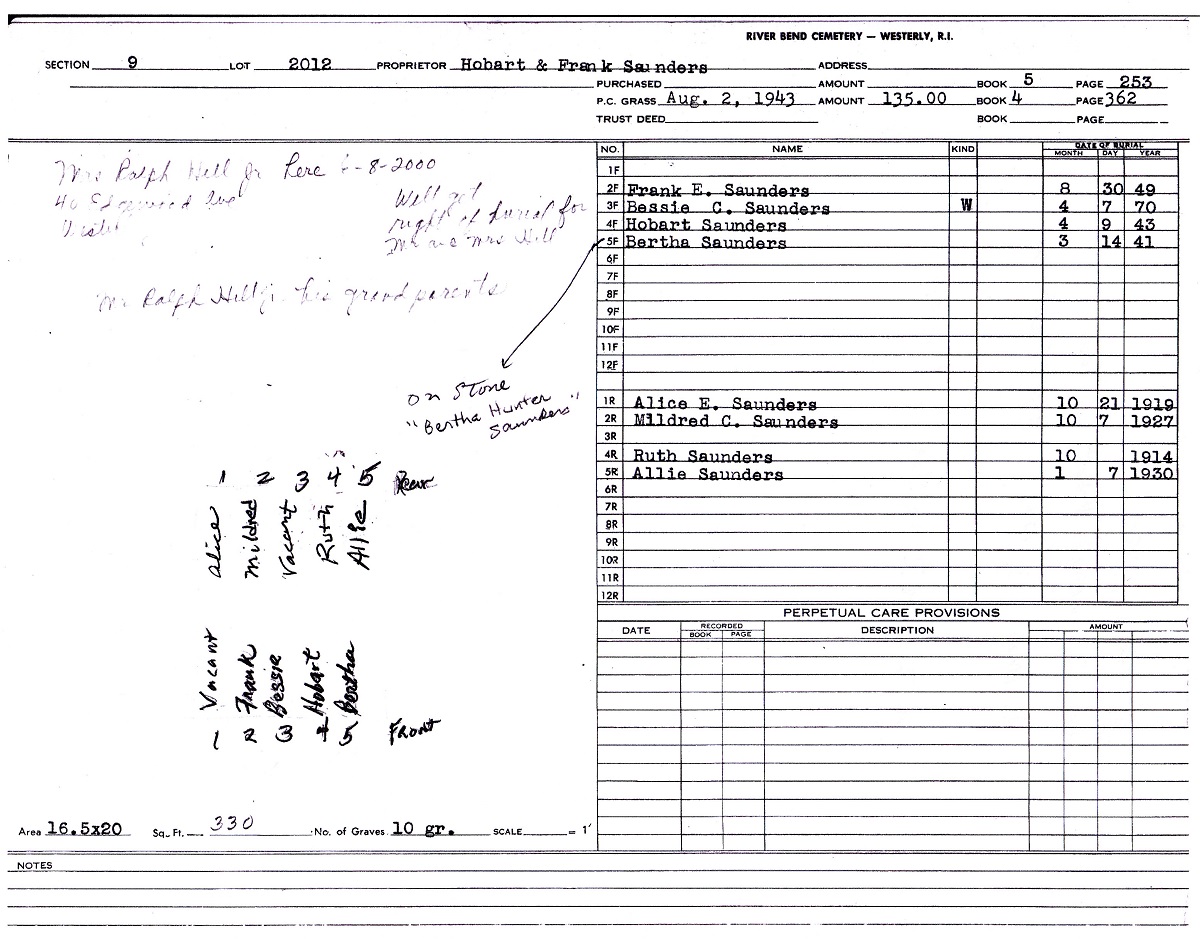 RIVER BEND CEMETERY — WESTERLY, R.I.
SECTION 9 LOT 2012 PROPRIETOR Hobart & Frank Saunders ADDRESS
PURCHASED AMOUNT BOOK 5 PAGE 253
P.C. GRASS Aug. 2, 1943 AMOUNT 135.00 BOOK 4 PAGE 362
TRUST DEED BOOK PAGE
Mrs Ralph Hill Jr here 6-8-2000
40 Edgewood Ave
Will get
right of burial for
Mr and Mrs Hill
Mr Ralph Hill Jr. his grand parents
on Stone
"Bertha Hunter
Saunders"
1 2 3 4 5 Rear
Alice Mildred Vacant Ruth Allie
Vacant Frank Bessie Hobart Bertha
1 2 3 4 5 Front
Area 16.5x20 Sq. Ft. 330 No. of Graves 10 gr. SCALE = 1'
NO. NAME KIND DATE OF BURIAL
MONTH DAY YEAR
1F
2F Frank E. Saunders 8 30 49
3F Bessie C. Saunders W 4 7 70
4F Hobart Saunders 4 9 43
5F Bertha Saunders 3 14 41
6F
7F
8F
9F
10F
11F
12F
1R Alice E. Saunders 10 21 1919
2R Mildred C. Saunders 10 7 1927
3R
4R Ruth Saunders 10 1914
5R Allie Saunders 1 7 1930
6R
7R
8R
9R
10R
11R
12R
PERPETUAL CARE PROVISIONS
DATE RECORDED DESCRIPTION AMOUNT
BOOK PAGE
NOTES